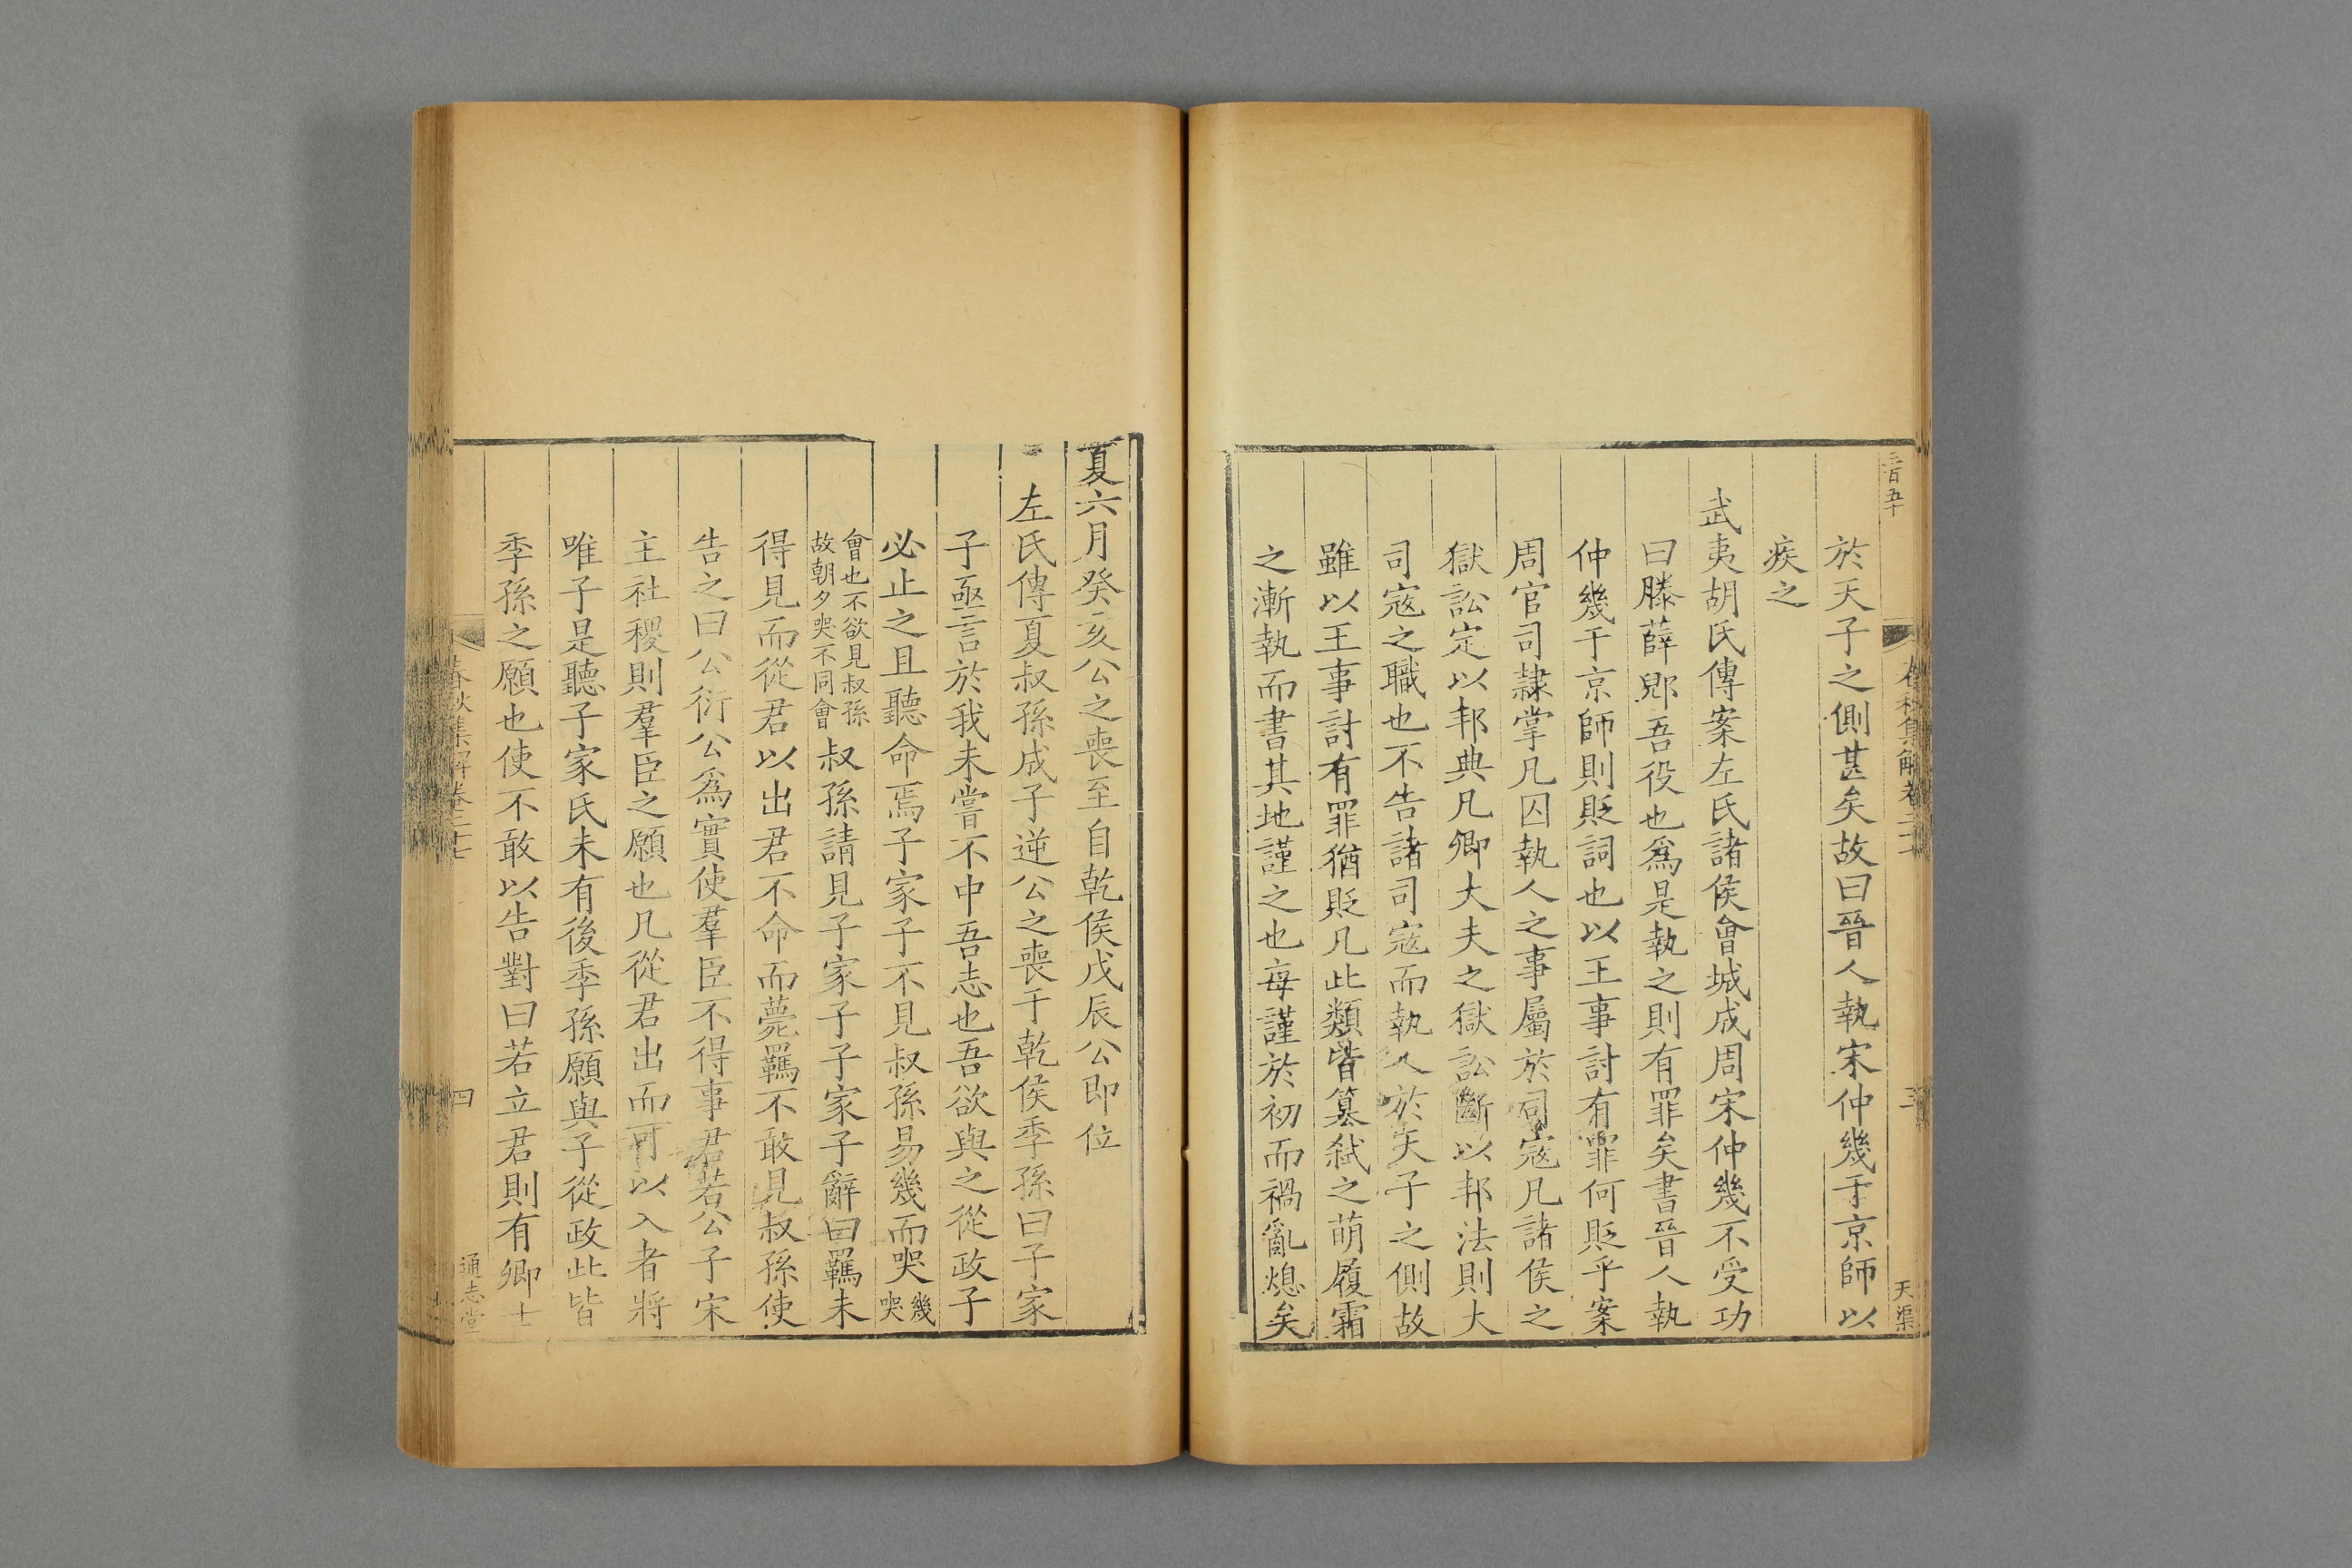 三百五十
春秋集解卷二十七
三
天渠
於天子之側甚矣故曰晉人執宋仲幾于京師以
疾之
武夷胡氏傳案左氏諸侯會城成周宋仲幾不受功
曰滕薛郳吾役也爲是執之則有罪矣書晉人執
仲幾于京師則貶詞也以王事討有罪何貶乎案
周官司隷掌凡囚執人之事屬於司寇凡諸侯之
獄訟定以邦典凡卿大夫之獄訟斷以邦法則大
司寇之職也不告諸司寇而執人於天子之側故
雖以王事討有罪猶貶凡此類皆簒弑之萌履霜
之漸執而書其地謹之也每謹於初而禍亂熄矣
夏六月癸亥公之喪至自乾侯戊辰公即位
左氏傳夏叔孫成子逆公之喪于乾侯季孫曰子家
子亟言於我未嘗不中吾志也吾欲與之從政子
必止之且聽命焉子家子不見叔孫易幾而哭幾哭
會也不欲見叔孫故朝夕哭不同會叔孫請見子家子子家子辭曰羈未
得見而從君以出君不命而薨羈不敢見叔孫使
告之曰公衍公爲實使羣臣不得事君若公子宋
主社稷則羣臣之願也凡從君出而可以入者將
唯子是聽子家氏未有後季孫願與子從政此皆
季孫之願也使不敢以告對曰若立君則有卿士
春秋集解卷二十七
四
通志堂